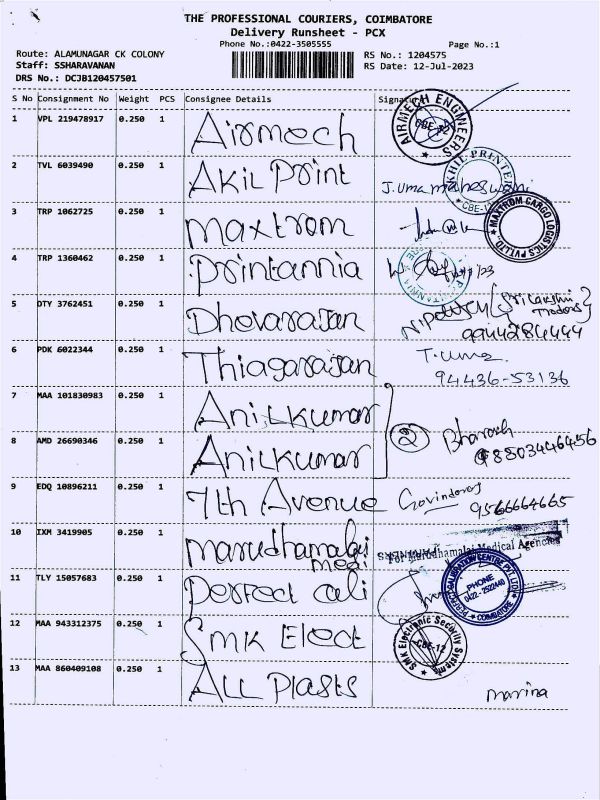 THE PROFESSIONAL COURIERS, COIMBATORE
Delivery Runsheet - PCX
Phone No.:0422-3505555
Page No.:1
Route: ALAMUNAGAR CK COLONY
RS No.: 1204575
Staff: SSHARAVANAN
RS Date: 12-Jul-2023
DRS No.: DCJB120457501
S No Consignment No Weight PCS Consignee Details Signature
1 VPL 219478917 0.250 1 Airmech AIRMECH ENGINEERS CBE-12
2 TVL 6039490 0.250 1 AKIL Print J. Uma maheswari
3 TRP 1062725 0.250 1 maxtrom MAXTROM CARGO LOGISTICS PVT LTD.
4 TRP 1360462 0.250 1 Printannia
5 DTY 3762451 0.250 1 Dhevarajan Sri Lakshmi Traders
9944284444
6 PDK 6022344 0.250 1 Thiagarajan T. uma
94436-53136
7 MAA 101830983 0.250 1 Anilkumar
8 AMD 26690346 0.250 1 Anilkumar 2 Bharath
9 EDQ 10896211 0.250 1 7th Avenue Govindaraj
9566664665
10 IXM 3419905 0.250 1 marudhamalai medi For Marudhamalai Medical Agencies
11 TLY 15057683 0.250 1 perfect cali PHONE 0422-2522440 COIMBATORE
12 MAA 943312375 0.250 1 SMK Elect SMK Electronic Security Systems CBE-12
13 MAA 860409108 0.250 1 ALL Plasts marina